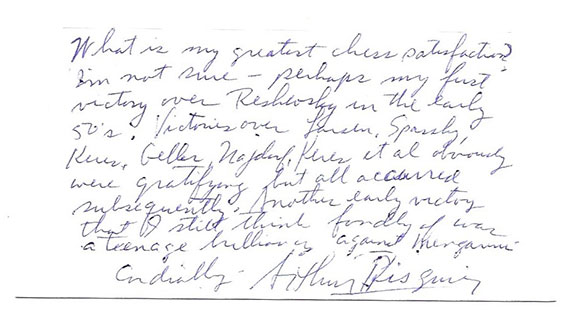 What is my greatest chess satisfaction?
I'm not sure – perhaps my first
victory over Reshevsky in the early
50's. Victories over Larsen, Spassky,
Keres, Geller, Najdorf, Keres et al obviously
were gratifying but all occurred
subsequently. Another early victory
that I still think fondly of was
a teenage brilliancy against Mengarini
Cordially - Arthur Bisguier